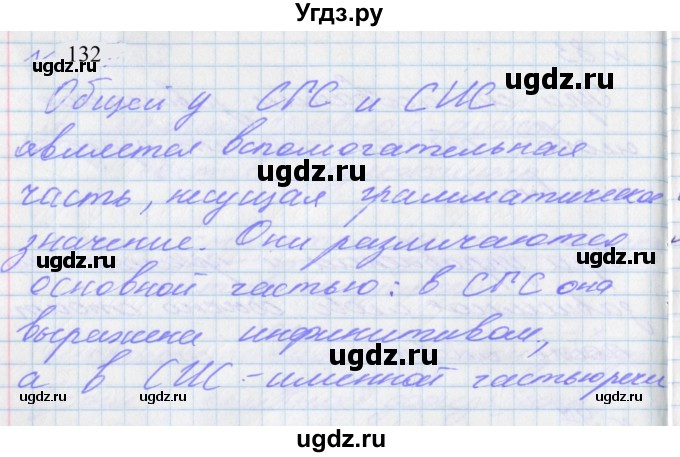 Угдз.ру
132
Общей у СГС и СИС
ugdz.ru ugdz.ru
является вспомогательная
ugdz.ru
часть, несущая грамматическое
значение. Они различаются
ugdz.ru ugdz.ru
основной частью: в СГС она
выражена инфинитивом,
ugdz.ru ugdz.ru
а в СИС - именной частью речи
ugdz.ru